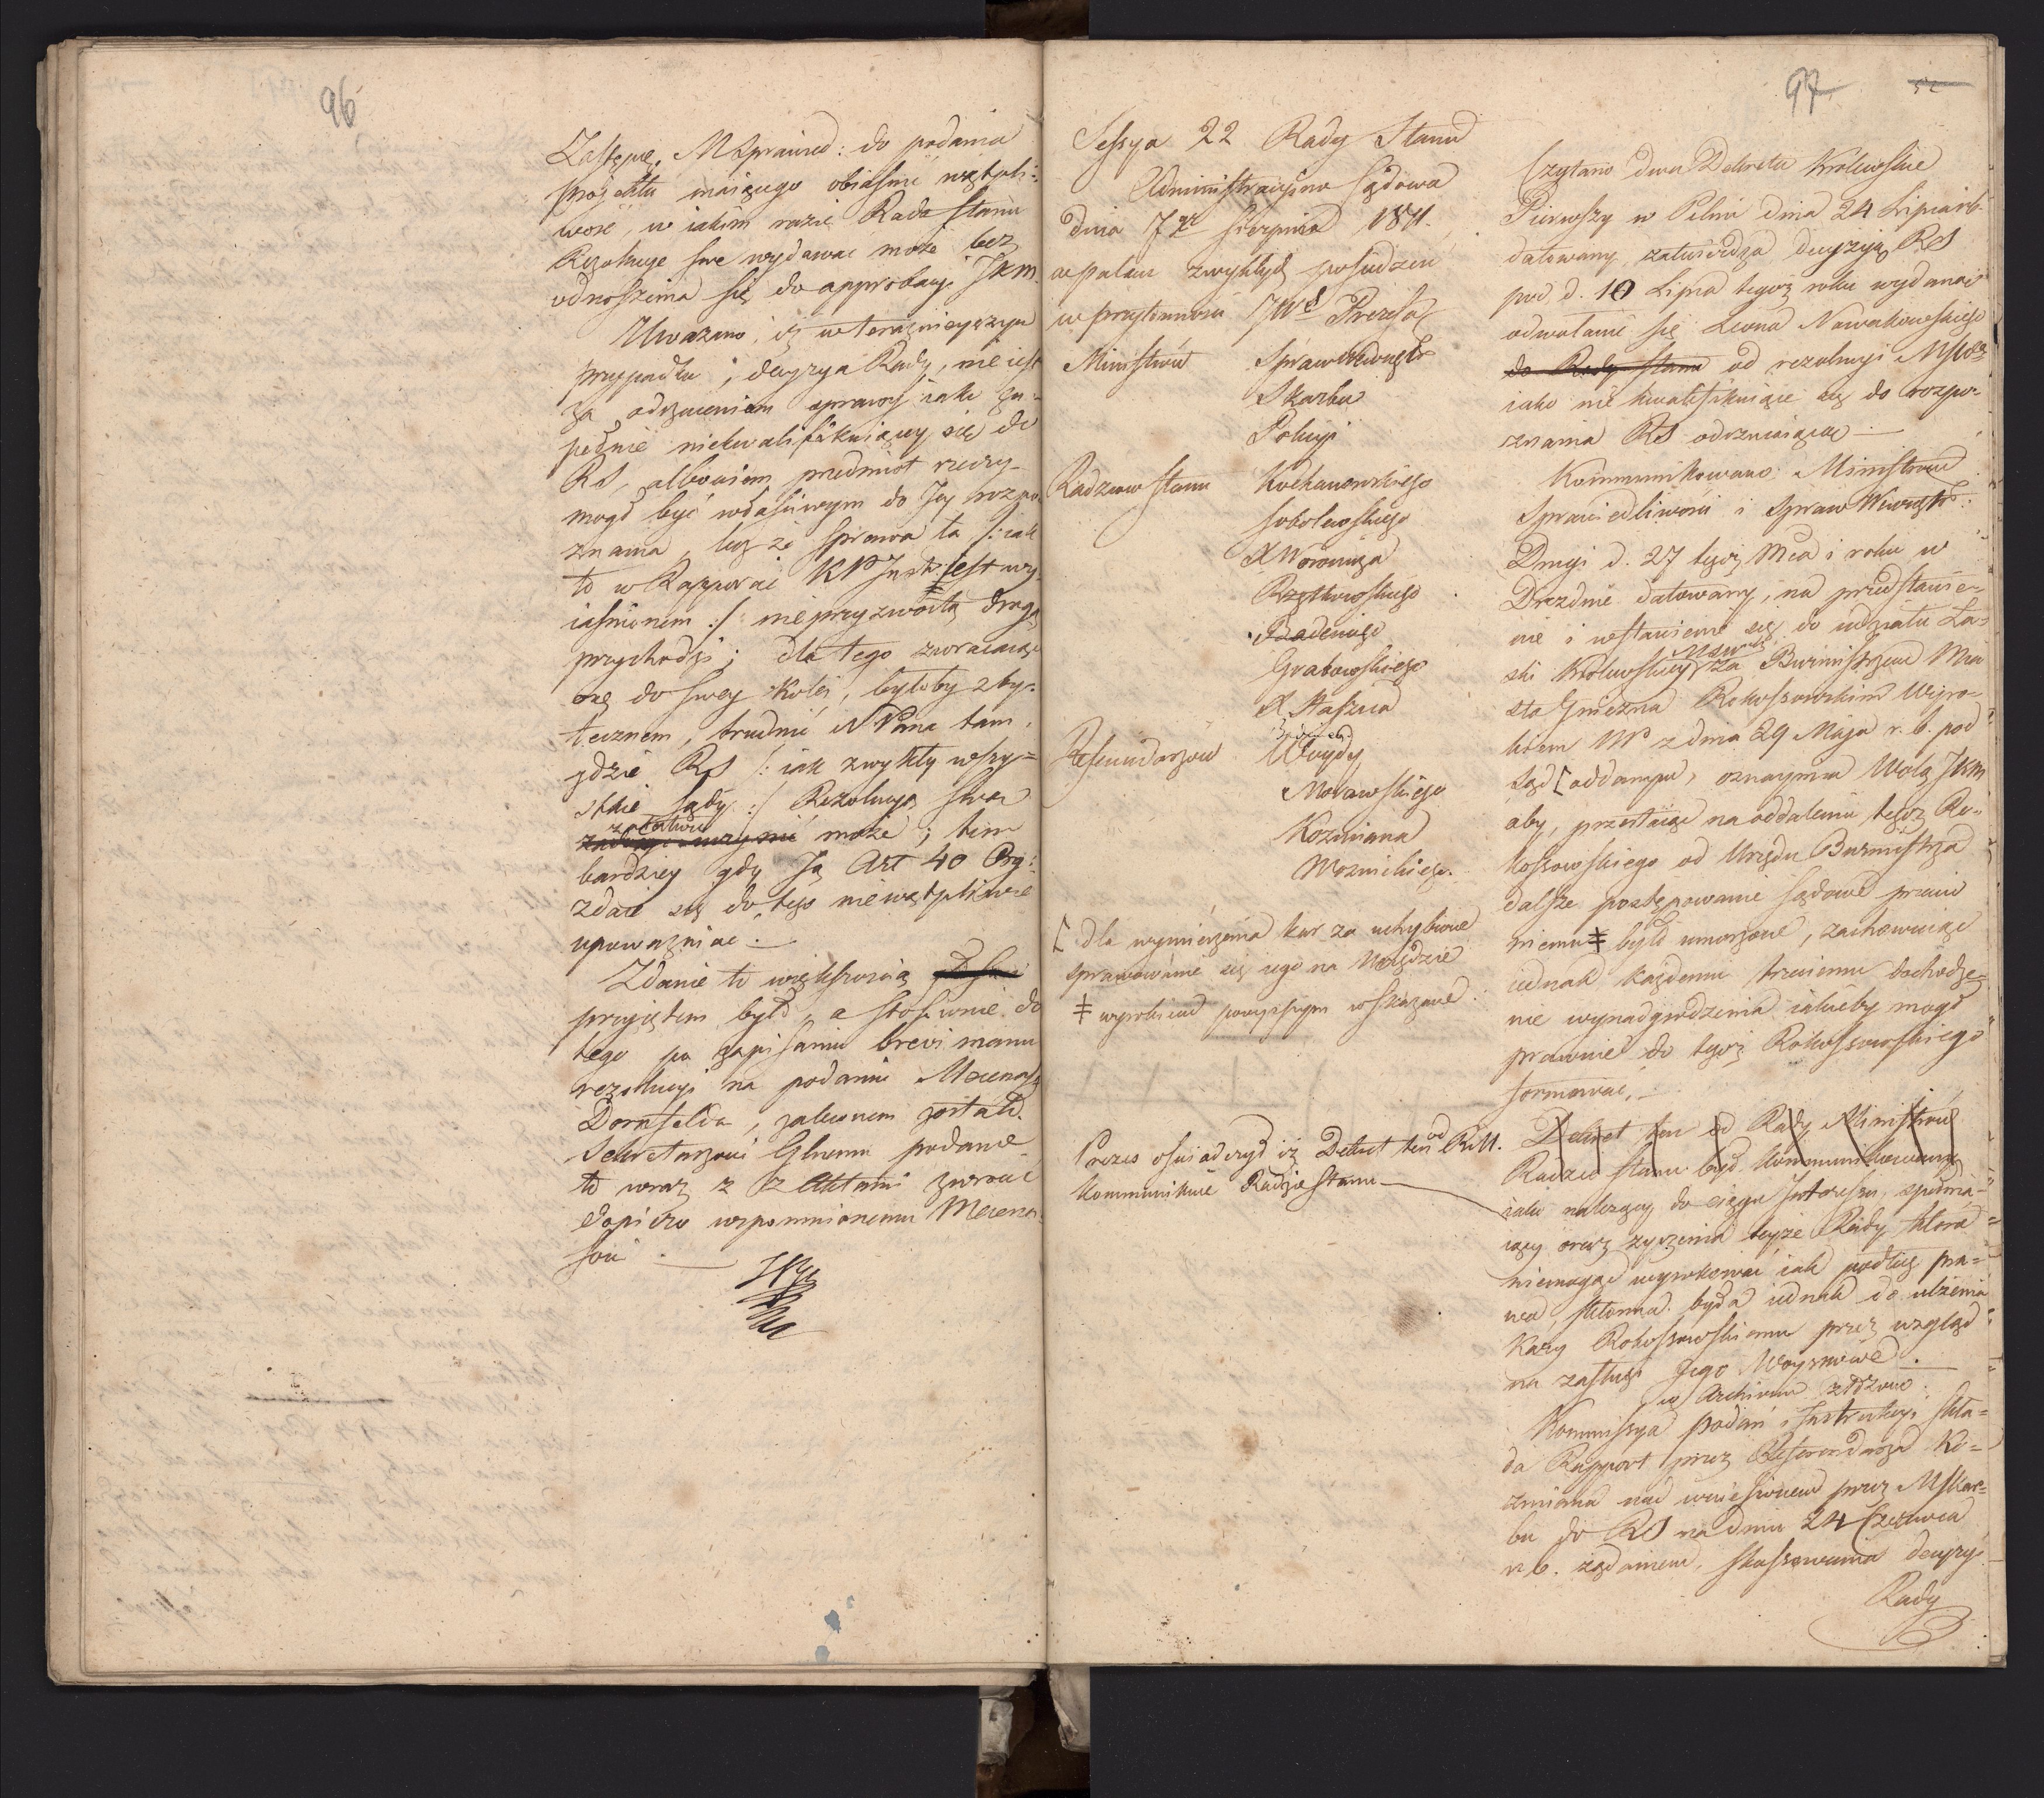 96
Zastępcę MSprawied: do podania
projektu maiącego obiaśnić wątpli=
wość, w iakim razie Rada Stanu
Rezolucye swe wydawać może bez
odnoszenia się do approbacyi JKM.
Uważano, iż w teraźnieyszym
przypadku, decyzya Rady, nie iest
za odrzuceniem sprawy iako zu=
pełnie niekwalifikuiącey się do
RS, albowiem przedmiot rzeczy
mogł być właściwym do Jey rozpo
znania, lecz że sprawa ta /: iak
to w Rapporcie KP Instr: iest wy
iaśnionem :/ nieprzyzwoitą drogą
przychodzi; dla tego zwracaiąc
onę do swey kolei, byłoby zby=
tecznem, trudnić NPana tam,
gdzie RS /: iak zwykły wszy=
stkie sądy :/ Rezolucyą swą
załatwić
może; tem
bardziey gdy Ją Art 40 Org:
zdaie się do tego niewątpliwie
upoważniać.
Zdanie to większością
przyiętem było, a stosownie do
tego po zapisaniu brevi manu
rezolucyi na podaniu Mecenasa
Dornfelda, zalecono zostało
Sekretarzowi Glnemu podanie
to wraz z Aktami zwrócić
dopiero wspomnionemu Mecena
sowi.
97
52
Sessya 22 Rady Stanu
Administracyino Sądowa
dnia 7go Sierpnia 1811.
w pałacu zwykłych posiedzeń
w przytomności JWo Prezesa
Ministrów Sprawiedliwości
Skarbu
Policyi
Radzców Stanu Kochanowskiego
Sobolewskiego
X Woronicza
Rzętkowskiego
Badeniego
Grabowskiego
X. Staszica
Referendarzów Woydy
Morawskiego
Kozmiana
Woznickiego.
[ dla wymierzenia kar za uchybione
sprawowanie się iego na Urzędzie
‡ wyrokiem powyższym wskazane
Prezes oświadczył iż Dekret ten od RM.
kommunikuie Radzie Stanu
Czytano dwa Dekreta Królewskie
Pierwszy w Pilni dnia 24 Lipca r b.
datowany zatwierdza decyzyą RS
pod d. 10 Lipca tegoż roku wydaną
odwołanie się Leona Nowakowskiego
do Rady Stanu od rezolucyi MSWo
iako nie kwalifikuiące się do rozpo=
znania RS odrzucaiącą
Kommunikowano Ministrowi
Sprawiedliwości i Spraw Wewnętr:
Drugi d. 27 tegoż Mca i roku w
Dreźnie datowany, na przedstawie=
nie i wstawienie się do udziału Ła=
ski Królewskiey za Burmistrzem Mia
sta Gniezna Rokossowskim Wyro=
kiem z dnia 29 Maja r. b. pod
Sąd [ oddanym, oznaymia Wolą JKM
aby, przestaiąc na oddaleniu tegoż Ro=
kossowskiego od Urzędu Burmistrza
dalsze postępowanie sądowe przeciw
niemu ‡ było umorzone, zachowuiąc
iednak każdemu trzeciemu dochodze=
nie wynadgrodzenia iakieby mogł
prawnie do tegoż Rokossowskiego
formować.
Dekret ten od Rady Ministrów
Radzie Stanu był kommunikowany
iako należący do ciągu Interessu, spełnia=
iący oraz życzenia teyże Rady, która
niemogąc wyrokować iak podług pra=
wa, skłonna była iednak do ulżenia
kary Rokossowskiemu przez wzgląd
na zasługi Jego Woyskowe.
w Archivum złożono
Kommissya Podań i Instrukcyi skła=
da Rapport przez Referendarza Ko=
zmiana nad wniesionem przez MSkar=
bu do RS na dniu 24 Czerwca
r. b. żądaniem, skassowania decyzyi
Rady